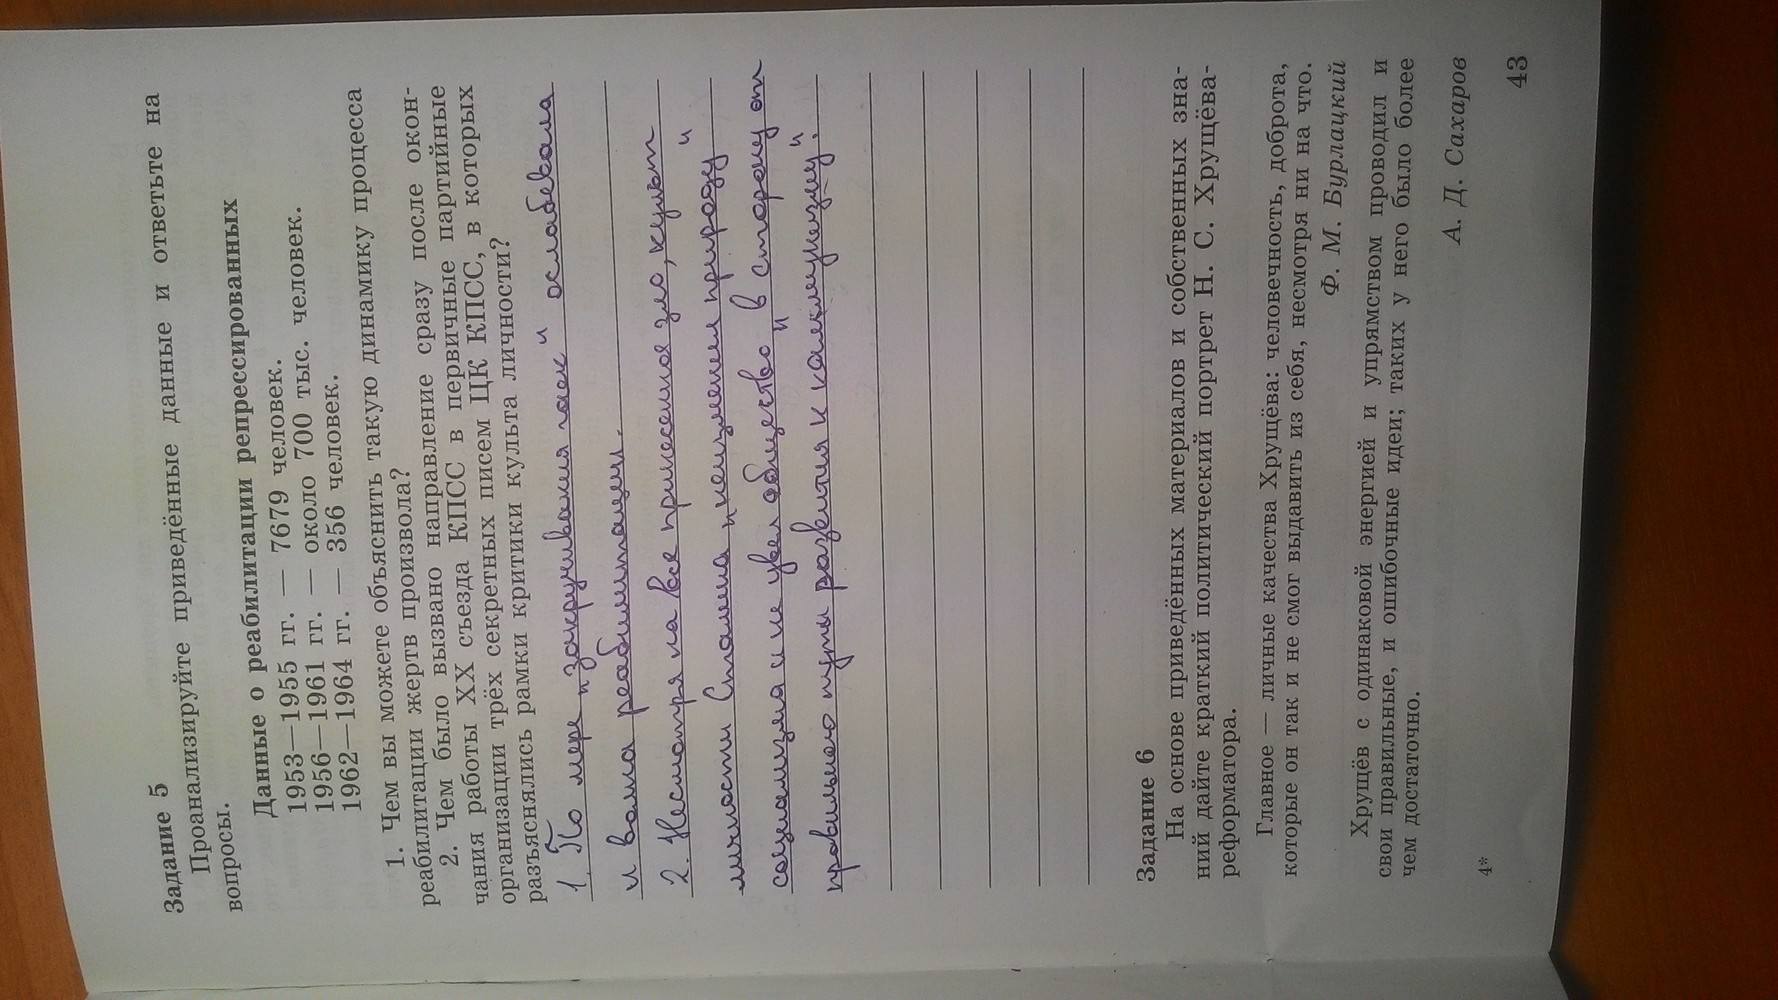 Задание 5
Проанализируйте приведённые данные и ответьте на
вопросы.
Данные о реабилитации репрессированных
1953—1955 гг. — 7679 человек.
1956—1961 гг. — около 700 тыс. человек.
1962—1964 гг. — 356 человек.
1. Чем вы можете объяснить такую динамику процесса
реабилитации жертв произвола?
2. Чем было вызвано направление сразу после окон-
чания работы XX съезда КПСС в первичные партийные
организации трёх секретных писем ЦК КПСС, в которых
разъяснялись рамки критики культа личности?
1. По мере "закручивания гаек" ослабевала
и волна реабилитации.
2. Несмотря на все принесенное зло, культ
личности Сталина "не изменил природу"
социализма и не увел общество "в сторону от
правильного пути развития к коммунизму".
Задание 6
На основе приведённых материалов и собственных зна-
ний дайте краткий политический портрет Н. С. Хрущёва-
реформатора.
Главное — личные качества Хрущёва: человечность, доброта,
которые он так и не смог выдавить из себя, несмотря ни на что.
Ф. М. Бурлацкий
Хрущёв с одинаковой энергией и упрямством проводил и
свои правильные, и ошибочные идеи; таких у него было более
чем достаточно.
А. Д. Сахаров
4*
43